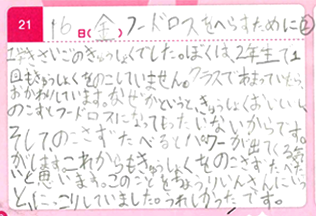 21 16日(金)フードロスをへらすために②
1学きさいごのきゅうしょくでした。ぼくは、2年生で1
回もきゅうしょくをのこしていません。クラスであまっていたら、
おかわりしています。なぜかというと、きゅうしょくおいしいし、
のこすとフードロスになってもったいないからです。
そして、のこさずたべるとパワーが出てくる気
がします。これからもきゅうしょくをのこさずたべた
いと思います。このことをちょうりいんさんにいう
と、にっこりしていました。うれしかったです。